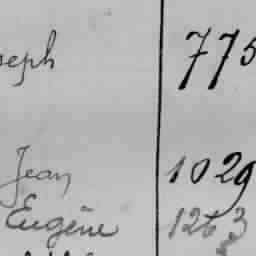 seph 775
Jean 1029
Eugène 1263